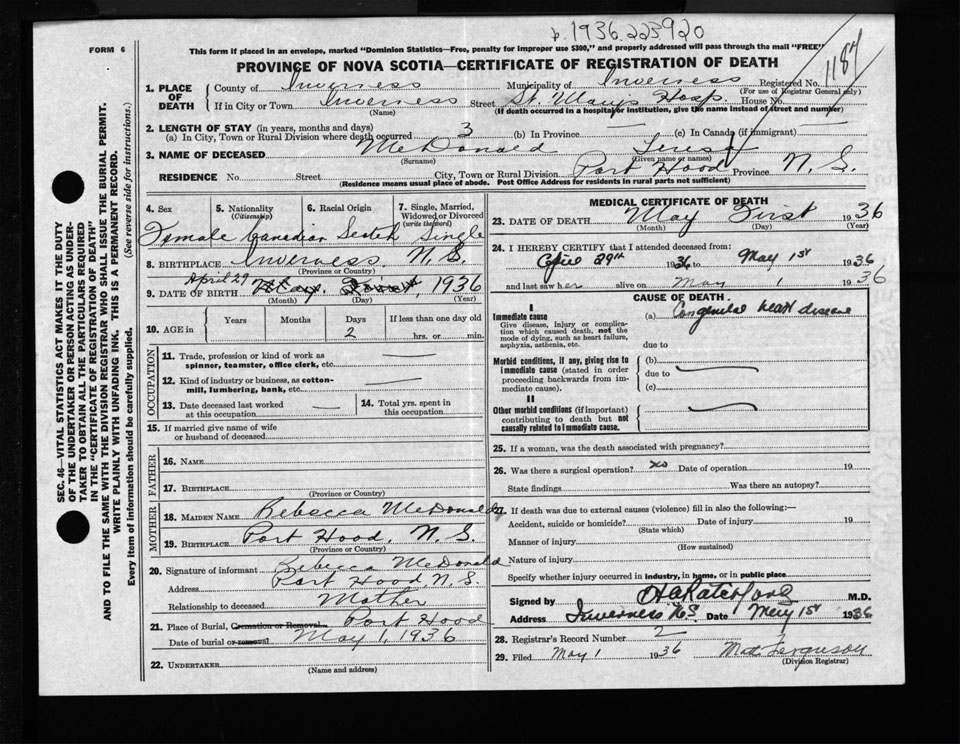 p. 1936.223920
FORM 6
This form if placed in an envelope, marked "Dominion Statistics—Free, penalty for improper use $300," and properly addressed will pass through the mail "FREE"
PROVINCE OF NOVA SCOTIA—CERTIFICATE OF REGISTRATION OF DEATH
1187
1. PLACE OF DEATH
County of Inverness Municipality of Inverness Registered No.
(For use of Registrar General only)
If in City or Town Inverness Street St. Marys Hosp. House No.
(Name) (If death occurred in a hospital or institution, give the name instead of street and number)
2. LENGTH OF STAY (in years, months and days)
(a) In City, Town or Rural Division where death occurred 3 (b) In Province — (c) In Canada (if immigrant) —
3. NAME OF DECEASED McDonald Teresa
(Surname) (Given name or names)
RESIDENCE No. Street City, Town or Rural Division Port Hood Province N.S.
(Residence means usual place of abode. Post Office Address for residents in rural parts not sufficient)
4. Sex 5. Nationality (Citizenship) 6. Racial Origin 7. Single, Married, Widowed or Divorced (write the word)
Female Canadian Scotch Single
8. BIRTHPLACE Inverness, N.S.
(Province or County)
April 29
9. DATE OF BIRTH May First, 1936
(Month) (Day) (Year)
10. AGE in Years Months Days If less than one day old
2 hrs. or min.
OCCUPATION
11. Trade, profession or kind of work as spinner, teamster, office clerk, etc. —
12. Kind of industry or business, as cotton-mill, lumbering, bank, etc. —
13. Date deceased last worked at this occupation — 14. Total yrs. spent in this occupation
15. If married give name of wife or husband of deceased
FATHER
16. NAME
17. BIRTHPLACE
(Province or Country)
MOTHER
18. MAIDEN NAME Rebecca McDonald
19. BIRTHPLACE Port Hood, N.S.
(Province or Country)
20. Signature of informant Rebecca McDonald
Address Port Hood N.S.
Relationship to deceased Mother
21. Place of Burial, Cremation or Removal Port Hood
Date of burial or removal May 1, 1936
22. UNDERTAKER
(Name and address)
MEDICAL CERTIFICATE OF DEATH
23. DATE OF DEATH May First 1936
(Month) (Day) (Year)
24. I HEREBY CERTIFY that I attended deceased from:
April 29th 1936 to May 1st 1936
and last saw her alive on May 1 1936
CAUSE OF DEATH
I
Immediate cause (a) Congenital heart disease
Give disease, injury or complication which caused death, not the mode of dying, such as heart failure, asphyxia, asthenia, etc.
due to
Morbid conditions, if any, giving rise to immediate cause (stated in order proceeding backwards from immediate cause).
(b)
due to
(c)
II
Other morbid conditions (if important) contributing to death but not causally related to immediate cause.
25. If a woman, was the death associated with pregnancy?
26. Was there a surgical operation? No Date of operation 19
State findings Was there an autopsy?
27. If death was due to external causes (violence) fill in also the following:—
Accident, suicide or homicide? Date of injury 19
(State which)
Manner of injury
(How sustained)
Nature of injury
Specify whether injury occurred in industry, in home, or in public place
Signed by M.D.
Address Inverness N.S. Date May 1st 1936
28. Registrar's Record Number 2
29. Filed May 1 1936 Ferguson
(Division Registrar)
SEC. 46—VITAL STATISTICS ACT MAKES IT THE DUTY
OF THE UNDERTAKER OR PERSON ACTING AS UNDER-
TAKER TO OBTAIN ALL THE PARTICULARS REQUIRED
IN THE "CERTIFICATE OF REGISTRATION OF DEATH"
AND TO FILE THE SAME WITH THE DIVISION REGISTRAR WHO SHALL ISSUE THE BURIAL PERMIT.
WRITE PLAINLY WITH UNFADING INK. THIS IS A PERMANENT RECORD.
Every item of information should be carefully supplied. (See reverse side for instructions.)